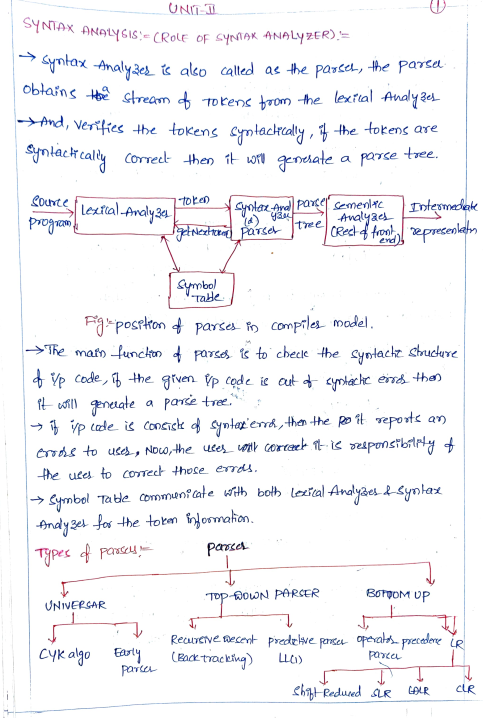 UNIT-II
1
SYNTAX ANALYSIS:= (ROLE OF SYNTAX ANALYZER):=
→ Syntax Analyzer is also called as the parser, the parser
obtains a stream of Tokens from the lexical Analyzer
→ And, verifies the tokens syntactically, if the tokens are
syntactically correct then it will generate a parse tree.
Source program
Lexical Analyzer
token
getNexttoken
Syntax Analyzer (or) parser
parse tree
sementic Analyzer (Rest of front end)
Intermediate representation
Symbol Table
Fig:- position of parser in compiler model.
→ The main function of parser is to check the syntactic structure
of i/p code, if the given i/p code is out of syntactic error then
it will generate a parse tree.
→ if i/p code is consists of syntax error, then the it reports an
errors to user, Now, the user it is responsibility of
the user to correct those errors.
→ Symbol Table communicate with both Lexical Analyzer & Syntax
Analyzer for the token information.
Types of parsers:-
Parser
UNIVERSAR
TOP-DOWN PARSER
BOTTOM UP
CYK algo
Early parser
Recursive Descent (Back tracking)
predictive parser LL(1)
operator precedence parser
LR
Shift Reduced
SLR
LALR
CLR